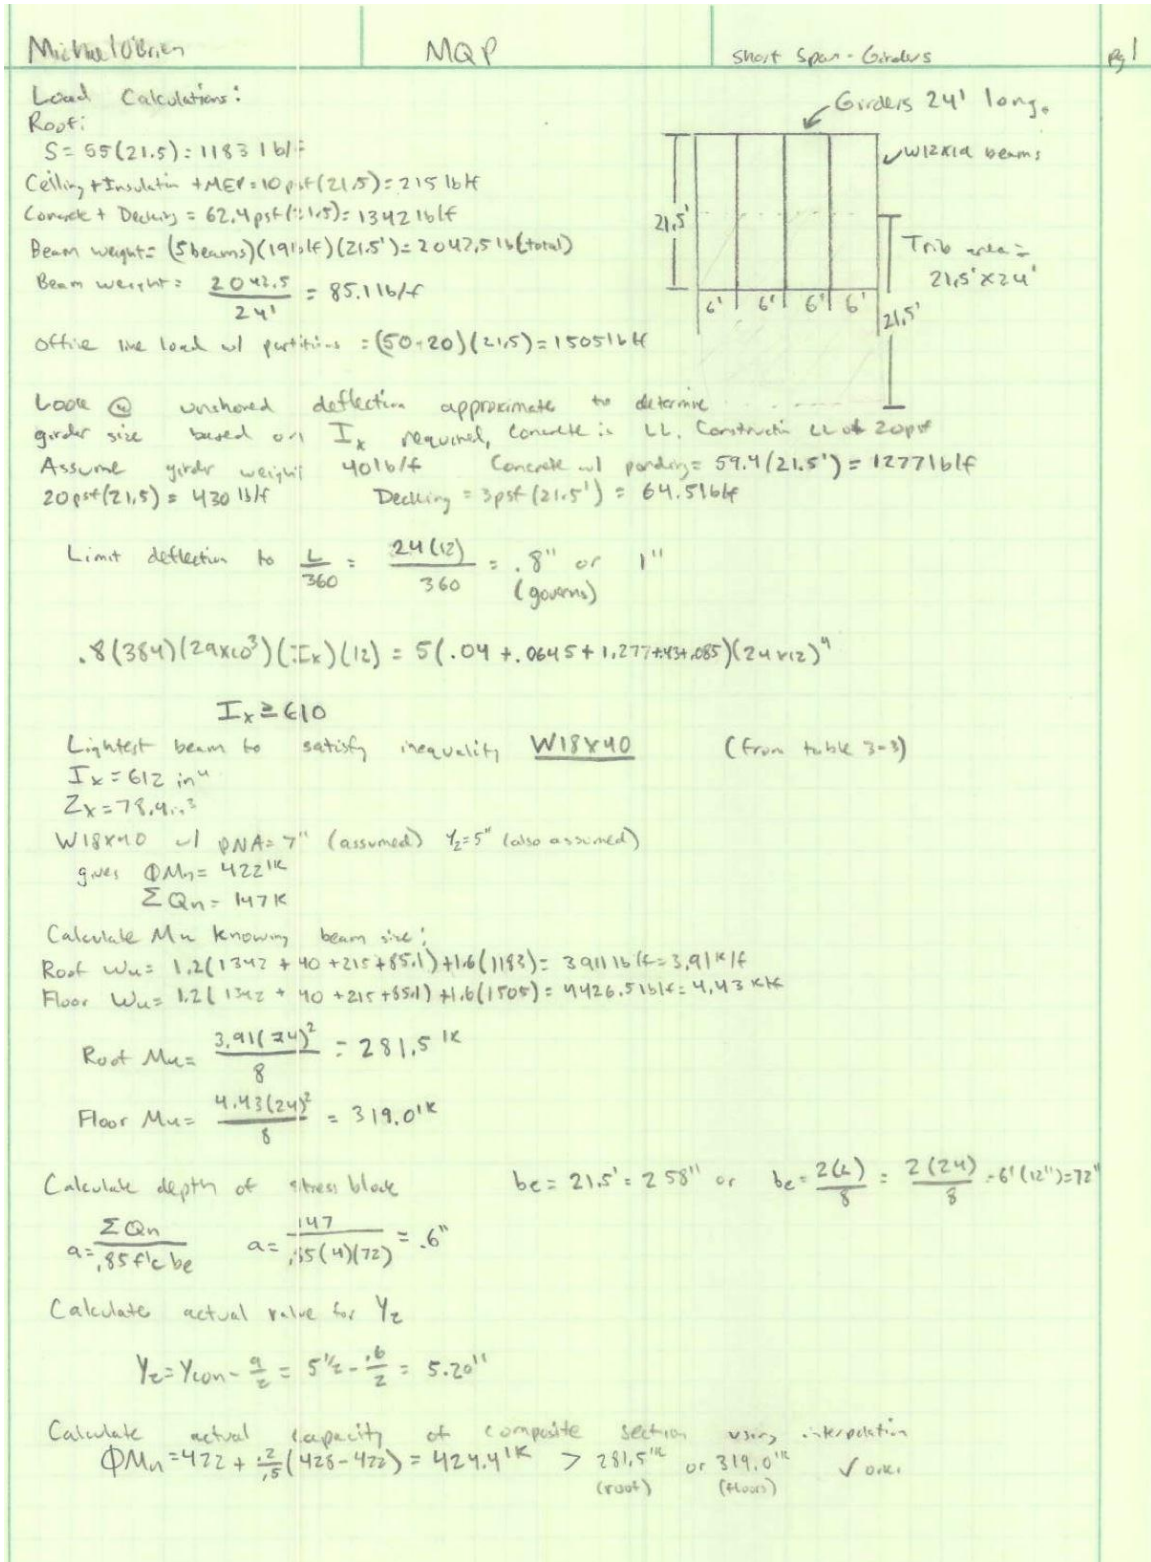 Michael O'Brien MQP Short Span - Girders Pg 1
Load Calculations:
Roof:
S = 55(21.5) = 1183 lb/f
Ceiling + Insulation + MEP = 10 psf (21.5) = 215 lb/f
Concrete + Decking = 62.4 psf (21.5) = 1342 lb/f
Beam weight = (5 beams)(19 lb/f)(21.5') = 2042.5 lb (total)
Beam weight = 2042.5 / 24' = 85.1 lb/f
Office live load w/ partitions = (50+20)(21.5) = 1505 lb/f
Girders 24' long.
W12x19 beams
21.5'
Trib area =
21.5' x 24'
6' 6' 6' 6'
21.5'
Look @ unshored deflection approximate to determine
girder size based on Ix required, concrete is LL. Construction LL of 20psf
Assume girder weight 40 lb/f Concrete w/ ponding = 59.4(21.5') = 1277 lb/f
20 psf (21.5) = 430 lb/f Decking = 3 psf (21.5') = 64.5 lb/f
Limit deflection to L/360 = 24(12)/360 = .8" or 1"
(governs)
.8(384)(29x10³)(Ix)(12) = 5(.04 + .0645 + 1.277 + .43 + .085)(24x12)⁴
Ix ≥ 610
Lightest beam to satisfy inequality W18x40 (from table 3-3)
Ix = 612 in⁴
Zx = 78.4 in³
W18x40 w/ PNA = 7" (assumed) Y2 = 5" (also assumed)
gives ΦMn = 422 'k
ΣQn = 147 k
Calculate Mu knowing beam size:
Roof Wu = 1.2(1342 + 40 + 215 + 85.1) + 1.6(1183) = 3911 lb/f = 3.91 k/f
Floor Wu = 1.2(1342 + 40 + 215 + 85.1) + 1.6(1505) = 4426.5 lb/f = 4.43 k/f
Roof Mu = 3.91(24)²/8 = 281.5 'k
Floor Mu = 4.43(24)²/8 = 319.0 'k
Calculate depth of stress block be = 21.5' = 258" or be = 2(L)/8 = 2(24)/8 = 6'(12") = 72"
a = ΣQn/.85f'c be a = 147/.85(4)(72) = .6"
Calculate actual value for Y2
Y2 = Ycon - a/2 = 5 1/2 - .6/2 = 5.20"
Calculate actual capacity of composite section using interpolation
ΦMn = 422 + .2/.5 (428 - 422) = 424.4 'k > 281.5 'k or 319.0 'k √ o.k.
(roof) (floors)